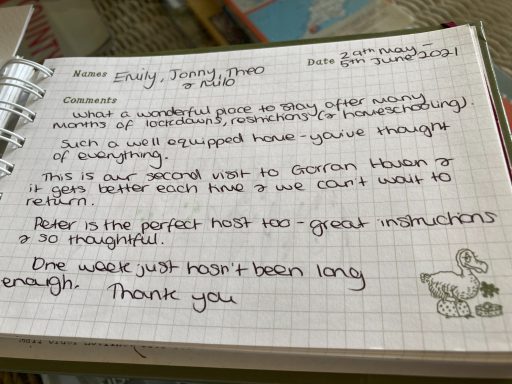 Names Emily, Jonny, Theo
& Milo
Date 29th May -
5th June 2021
Comments
What a wonderful place to stay after many
months of lockdowns, restrictions (& homeschooling).
Such a well equipped home - you've thought
of everything.
This is our second visit to Gorran Haven &
it gets better each time & we can't wait to
return.
Peter is the perfect host too - great instructions
& so thoughtful.
One week just hasn't been long
enough. Thank you